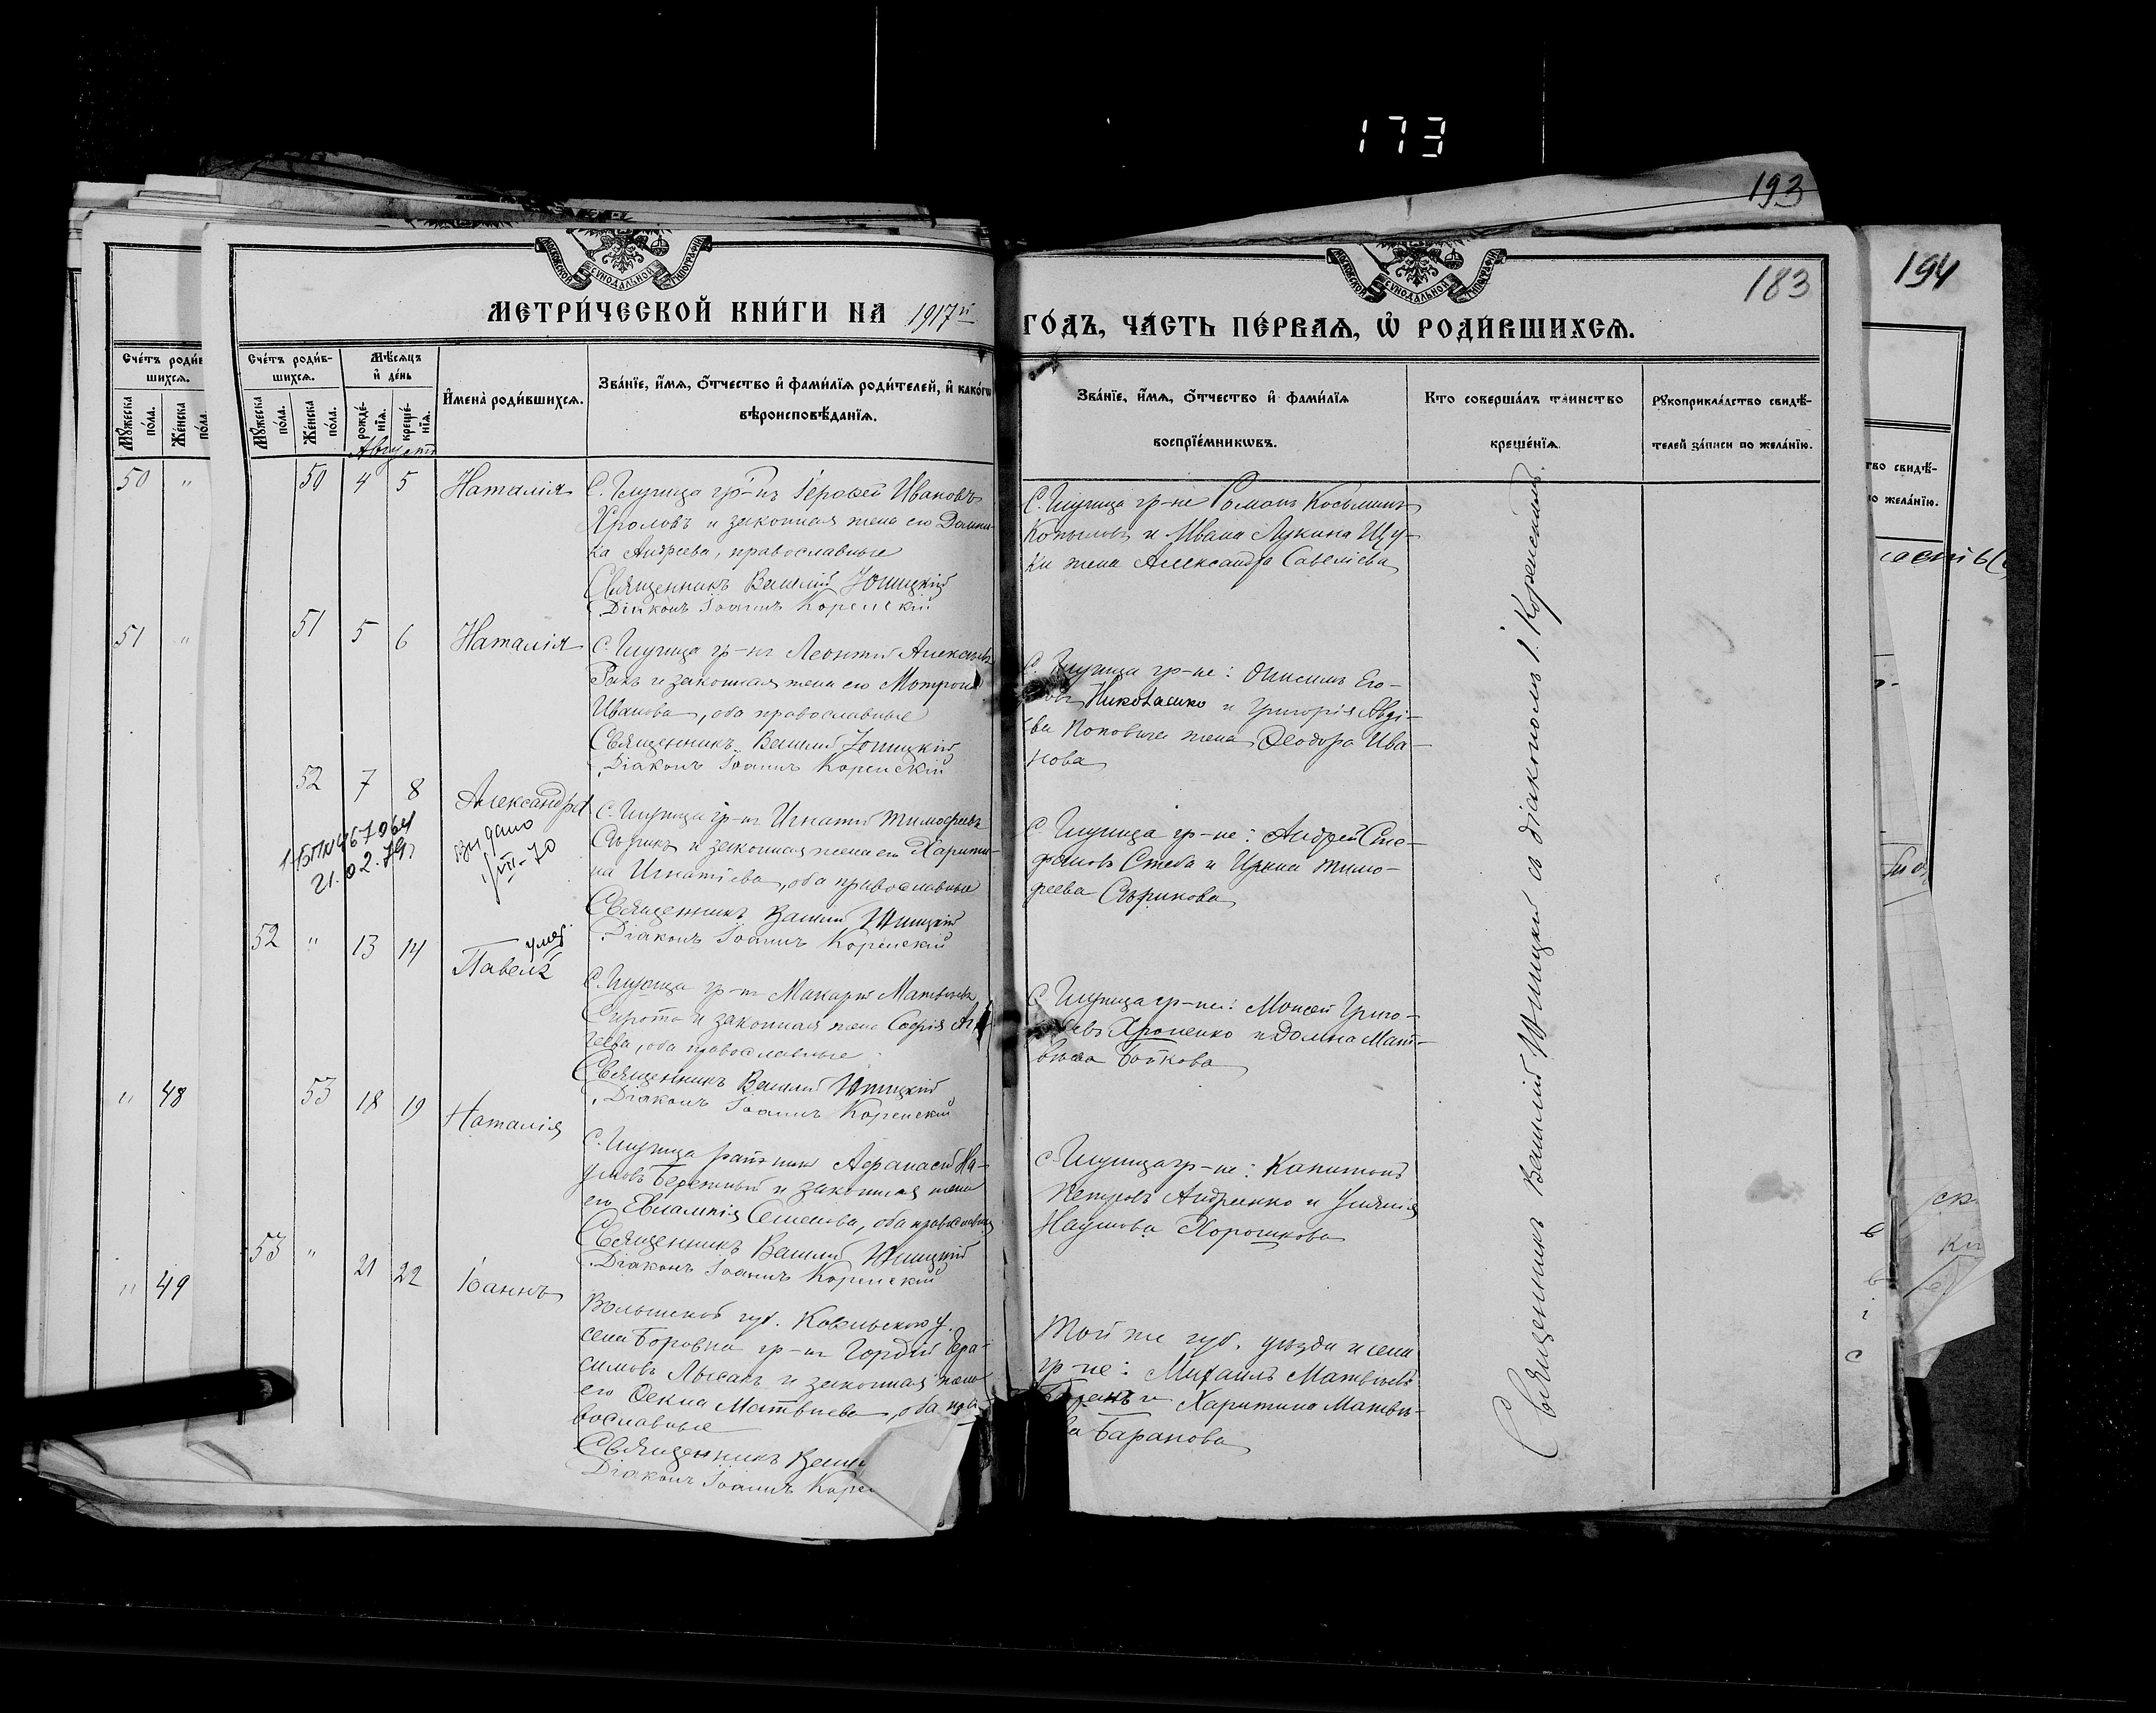 173
193
194
183
МОСКОВСКОЙ СѴНОДАЛЬНОЙ ТИПОГРАФІИ
МОСКОВСКОЙ СѴНОДАЛЬНОЙ ТИПОГРАФІИ
МЕТРИ́ЧЕСКОЙ КНИ́ГИ НА 1917й
ГО́ДЪ, ЧА́СТЬ ПЕ́РВАЯ, Ѡ҆ РОДИ́ВШИХСЯ.
Сче́тъ роди́в-
шихся.
Мꙋ́жеска по́ла.
Же́нска по́ла.
Мѣ́сяцъ и҆ де́нь
рожде́-нїя.
креще́-нїя.
И҆мена̀ роди́вшихся.
Зва́нїе, и҆́мя, ѻ҆́тчество и҆ фами́лїя роди́телей, и҆ како́гѡ
вѣроисповѣ́данїя.
Зва́нїе, и҆́мя, ѻ҆́тчество и҆ фами́лїя
воспрїе́мникѡвъ.
Кто соверша́лъ та́инство
креще́нїя.
Рꙋкоприкла́дство свидѣ́-
телей за́писи по жела́нїю.
Августъ
50 4 5 Наталія
С. Глуница гр-нъ Іерофей Ивановъ
Хроловъ и законная жена его Домни-
ка Андреева, православные
Священникъ Василій Юницкій
Діаконъ Іоаннъ Коренскій
С. Глуница гр-не Романъ Косьминъ
Копыловъ и Ивана Лукина Щу-
ки жена Александра Савелiева
51 5 6 Наталія
С. Глуница гр-нъ Леонтій
и законная жена его Матрона
Иванова, оба православные
Священникъ Василій Юницкій
Діаконъ Іоаннъ Коренскій
С. Глуница гр-не: Онисимъ Его-
ровъ Николаенко и Григорія Авді-
ева Поповича жена Ѳеодора Ива-
нова
52 7 8 Александра
1-БП №467964
21.02.79г
выдано
1/VII-70
С. Глуница гр-нъ Игнатій Тимофеевъ
и законная жена его Харити-
на Игнатіева, оба православные
Священникъ Василій Юницкій
Діаконъ Іоаннъ Коренскій
С. Глуница гр-не: Андрей Сте-
фановъ и Ирина Тимо-
феева
52 " 13 14 Павелъ
умер.
С. Глуница гр-нъ Макарій Матвѣевъ
Сирота и законная жена Софія
оба православные
Священникъ Василій Юницкій
Діаконъ Іоаннъ Коренскій
С. Глуница гр-не: Моисей Григо-
рьевъ Хроненко и Домна Мат-
вѣева Бойкова
53 18 19 Наталія
С. Глуница Афанасій На-
умовъ Бережный и законная жена
его Евлампія Семенова, оба православные
Священникъ Василій Юницкій
Діаконъ Іоаннъ Коренскій
С. Глуница гр-не: Капитонъ
Петровъ Андреенко и Уліянія
Наумова Хорошкова
53 " 21 22 Іоаннъ
Волынской губ. Ковельскаго у.
села Боровна гр-нъ Гордій Гера-
симовъ Лысакъ и законная жена
его Ѳекла Матвѣева, оба пра-
вославные
Священникъ Васил
Діаконъ Іоаннъ Корен
Той же губ. уѣзда и села
гр-не: Михаилъ Матвѣевъ
и Харитина Матвѣ-
ва Баранова
Священникъ Василій Юницкій съ діакономъ І. Коренскимъ
50 "
51 "
" 48
" 49